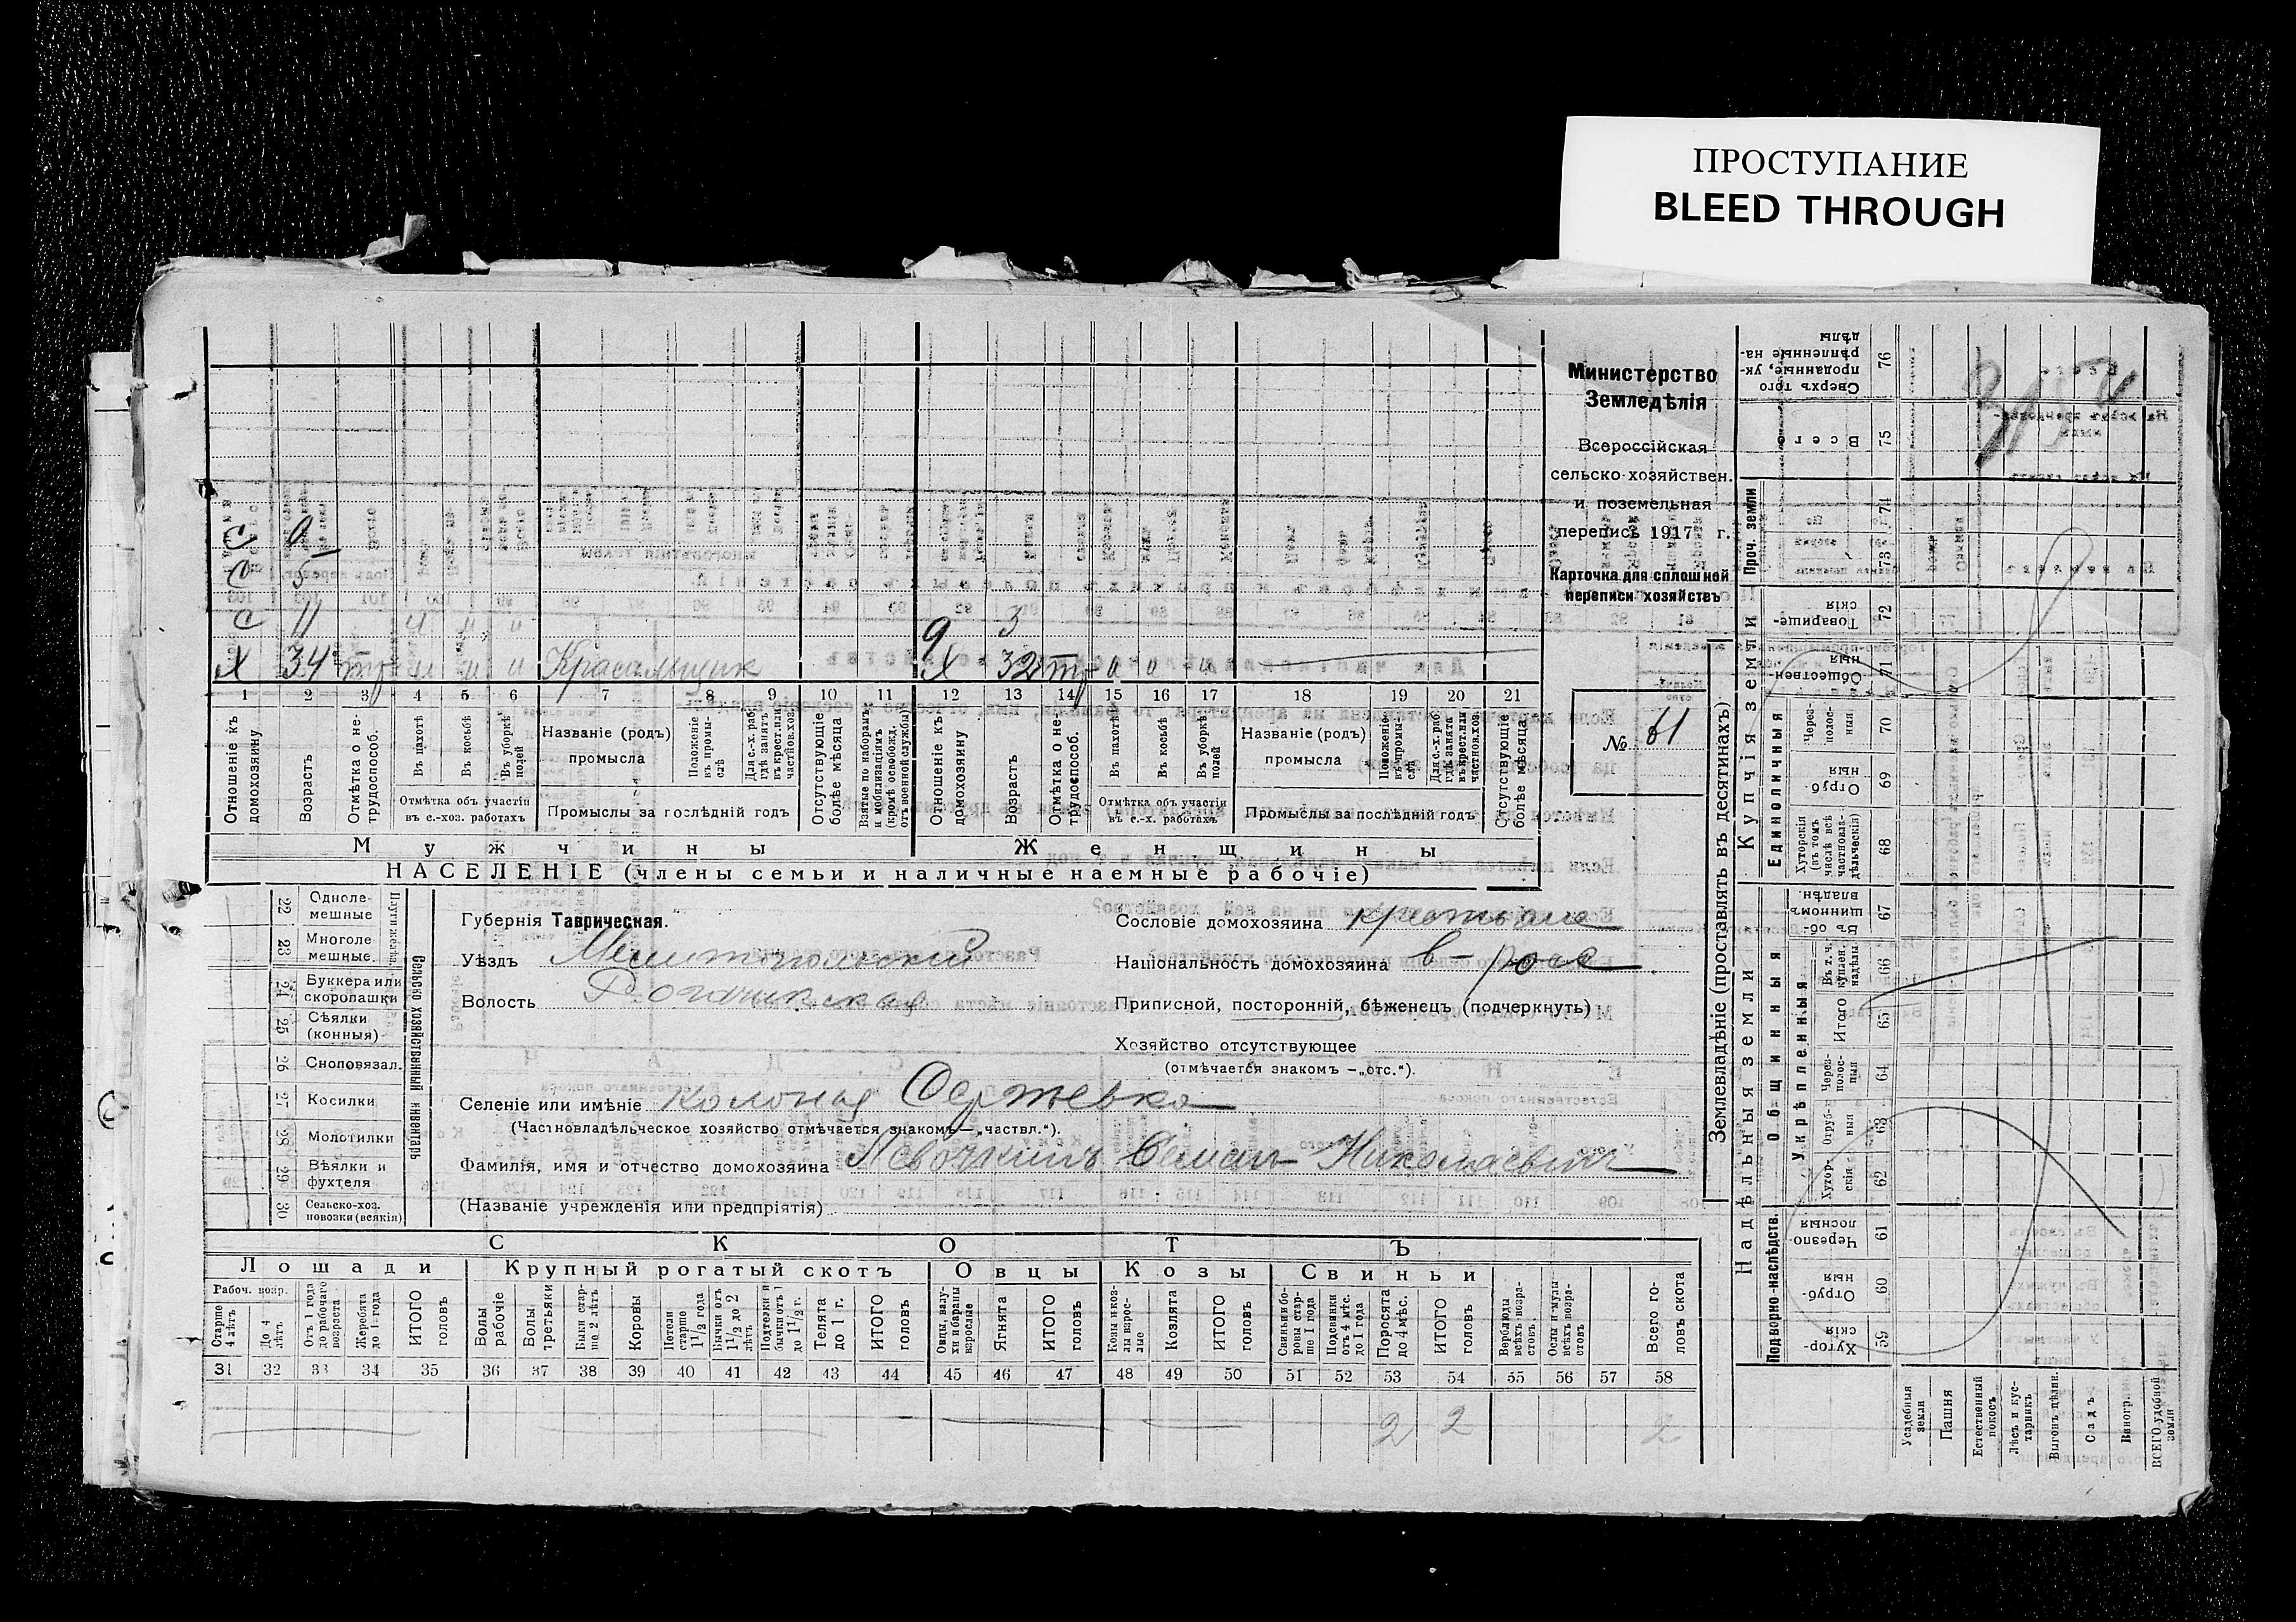 ПРОСТУПАНИЕ
BLEED THROUGH
Министерство
Земледѣлія
Всероссійская
сельско-хозяйствен.
и поземельная
перепись 1917 г.
Карточка для сплошной
переписи хозяйствъ
№ 61
с
с 5
с 11 и и и
х 34 тр и и и Красильщик
9 3
х 32 тр и и и
1 2 3 4 5 6 7 8 9 10 11 12 13 14 15 16 17 18 19 20 21
Отношеніе къ домохозяину.
Возрастъ
Отмѣтка о нетрудоспособ.
Въ пахотѣ
Въ косьбѣ
Въ уборкѣ полей
Отмѣтка объ участіи въ с.-хоз. работахъ
Названіе (родъ) промысла
Положеніе въ промыслѣ
Для с.-х. раб. гдѣ занятъ въ крест. или частнов. хоз.
Промыслы за послѣдній годъ
Отсутствующіе болѣе мѣсяца
Взятые по наборамъ и мобилизаціямъ (кромѣ освобожд. отъ военной службы)
Отношеніе къ домохозяину
Возрастъ
Отмѣтка о нетрудоспособ.
Въ пахотѣ
Въ косьбѣ
Въ уборкѣ полей
Отмѣтка объ участіи въ с.-х. работахъ
Названіе (родъ) промысла
Положеніе въ промыслѣ
Для с.-х. раб. гдѣ занята въ крест. или частнов. хоз.
Промыслы за послѣдній годъ
Отсутствующіе болѣе мѣсяца
Мужчины Женщины
НАСЕЛЕНІЕ (члены семьи и наличные наемные рабочіе)
Сельско хозяйственный инвентарь
22 Однолемешные
23 Многолемешные.
24 Буккера или скоропашки
25 Сѣялки (конныя)
26 Сноповязал.
27 Косилки
28 Молотилки
29 Вѣялки и фухтеля
30 Сельско-хоз. повозки (всякія)
Губернія Таврическая.
Уѣздъ Мелитопольскій
Волость Рогачикская
Сословіе домохозяина
Національность домохозяина в-росс
Приписной, посторонній, бѣженецъ (подчеркнуть)
Хозяйство отсутствующее
(отмѣчается знакомъ —„отс.“).
Селеніе или имѣніе колонія Сергѣевка
(Частновладѣльческое хозяйство отмѣчается знакомъ—„частвл.“).
Фамилія, имя и отчество домохозяина Левочкинъ Семенъ Николаевич
(Названіе учрежденія или предпріятія)
СКОТЪ
Лошади Крупный рогатый скотъ Овцы Козы Свиньи
Рабоч. возр.
Старше 4 лѣтъ
До 4 лѣтъ
Отъ 1 года до рабочаго возраста
Жеребята до 1 года
ИТОГО головъ
Волы рабочіе
Волы третьяки
Быки старше 2 лѣтъ
Коровы
Нетели старше 1½ года
Бычки отъ 1½ до 2 лѣтъ
Подтелки и бычки отъ 1 до 1½ г.
Телята до 1 г.
ИТОГО головъ
Овцы, валухи и бараны взрослые
Ягнята
ИТОГО головъ
Козы и козлы взрослые
Козлята
ИТОГО головъ
Свиньи боровы старше 1 года
Подсвинки отъ 4 мѣс. до 1 года
Поросята до 4 мѣс.
ИТОГО головъ
Верблюды всѣхъ возрастовъ.
Ослы и мулы всѣхъ возрастовъ
Всего головъ скота
31 32 33 34 35 36 37 38 39 40 41 42 43 44 45 46 47 48 49 50 51 52 53 54 55 56 57 58
2 2 2
Землевладѣніе (проставлять въ десятинахъ)
Купчія земли
Надѣльныя земли
Проч. земли
Единоличныя
Общинныя
Укрѣпленныя
Подворно-наслѣдств.
Сверхъ того проданные, укрѣпленные надѣлы 76
Всего 75
74
73
Товарищескія 72
Общественныя 71
Черезполосныя 70
Отрубныя 69
Хуторскія (въ томъ числѣ всѣ частновладѣльческія) 68
Въ общинномъ владѣн. 67
Въ т. ч. куплен. надѣлы 66
Итого 65
Черезполосныя 64
Отрубныя 63
Хуторскія 62
Черезполосныя 61
Отрубныя 60
Хуторскія 59
Усадебныя земли
Пашня
Естественный покосъ
Лѣсъ и кустарникъ
Выгонъ цѣлин.
Садъ
Виногр.
ВСЕГО удобной земли